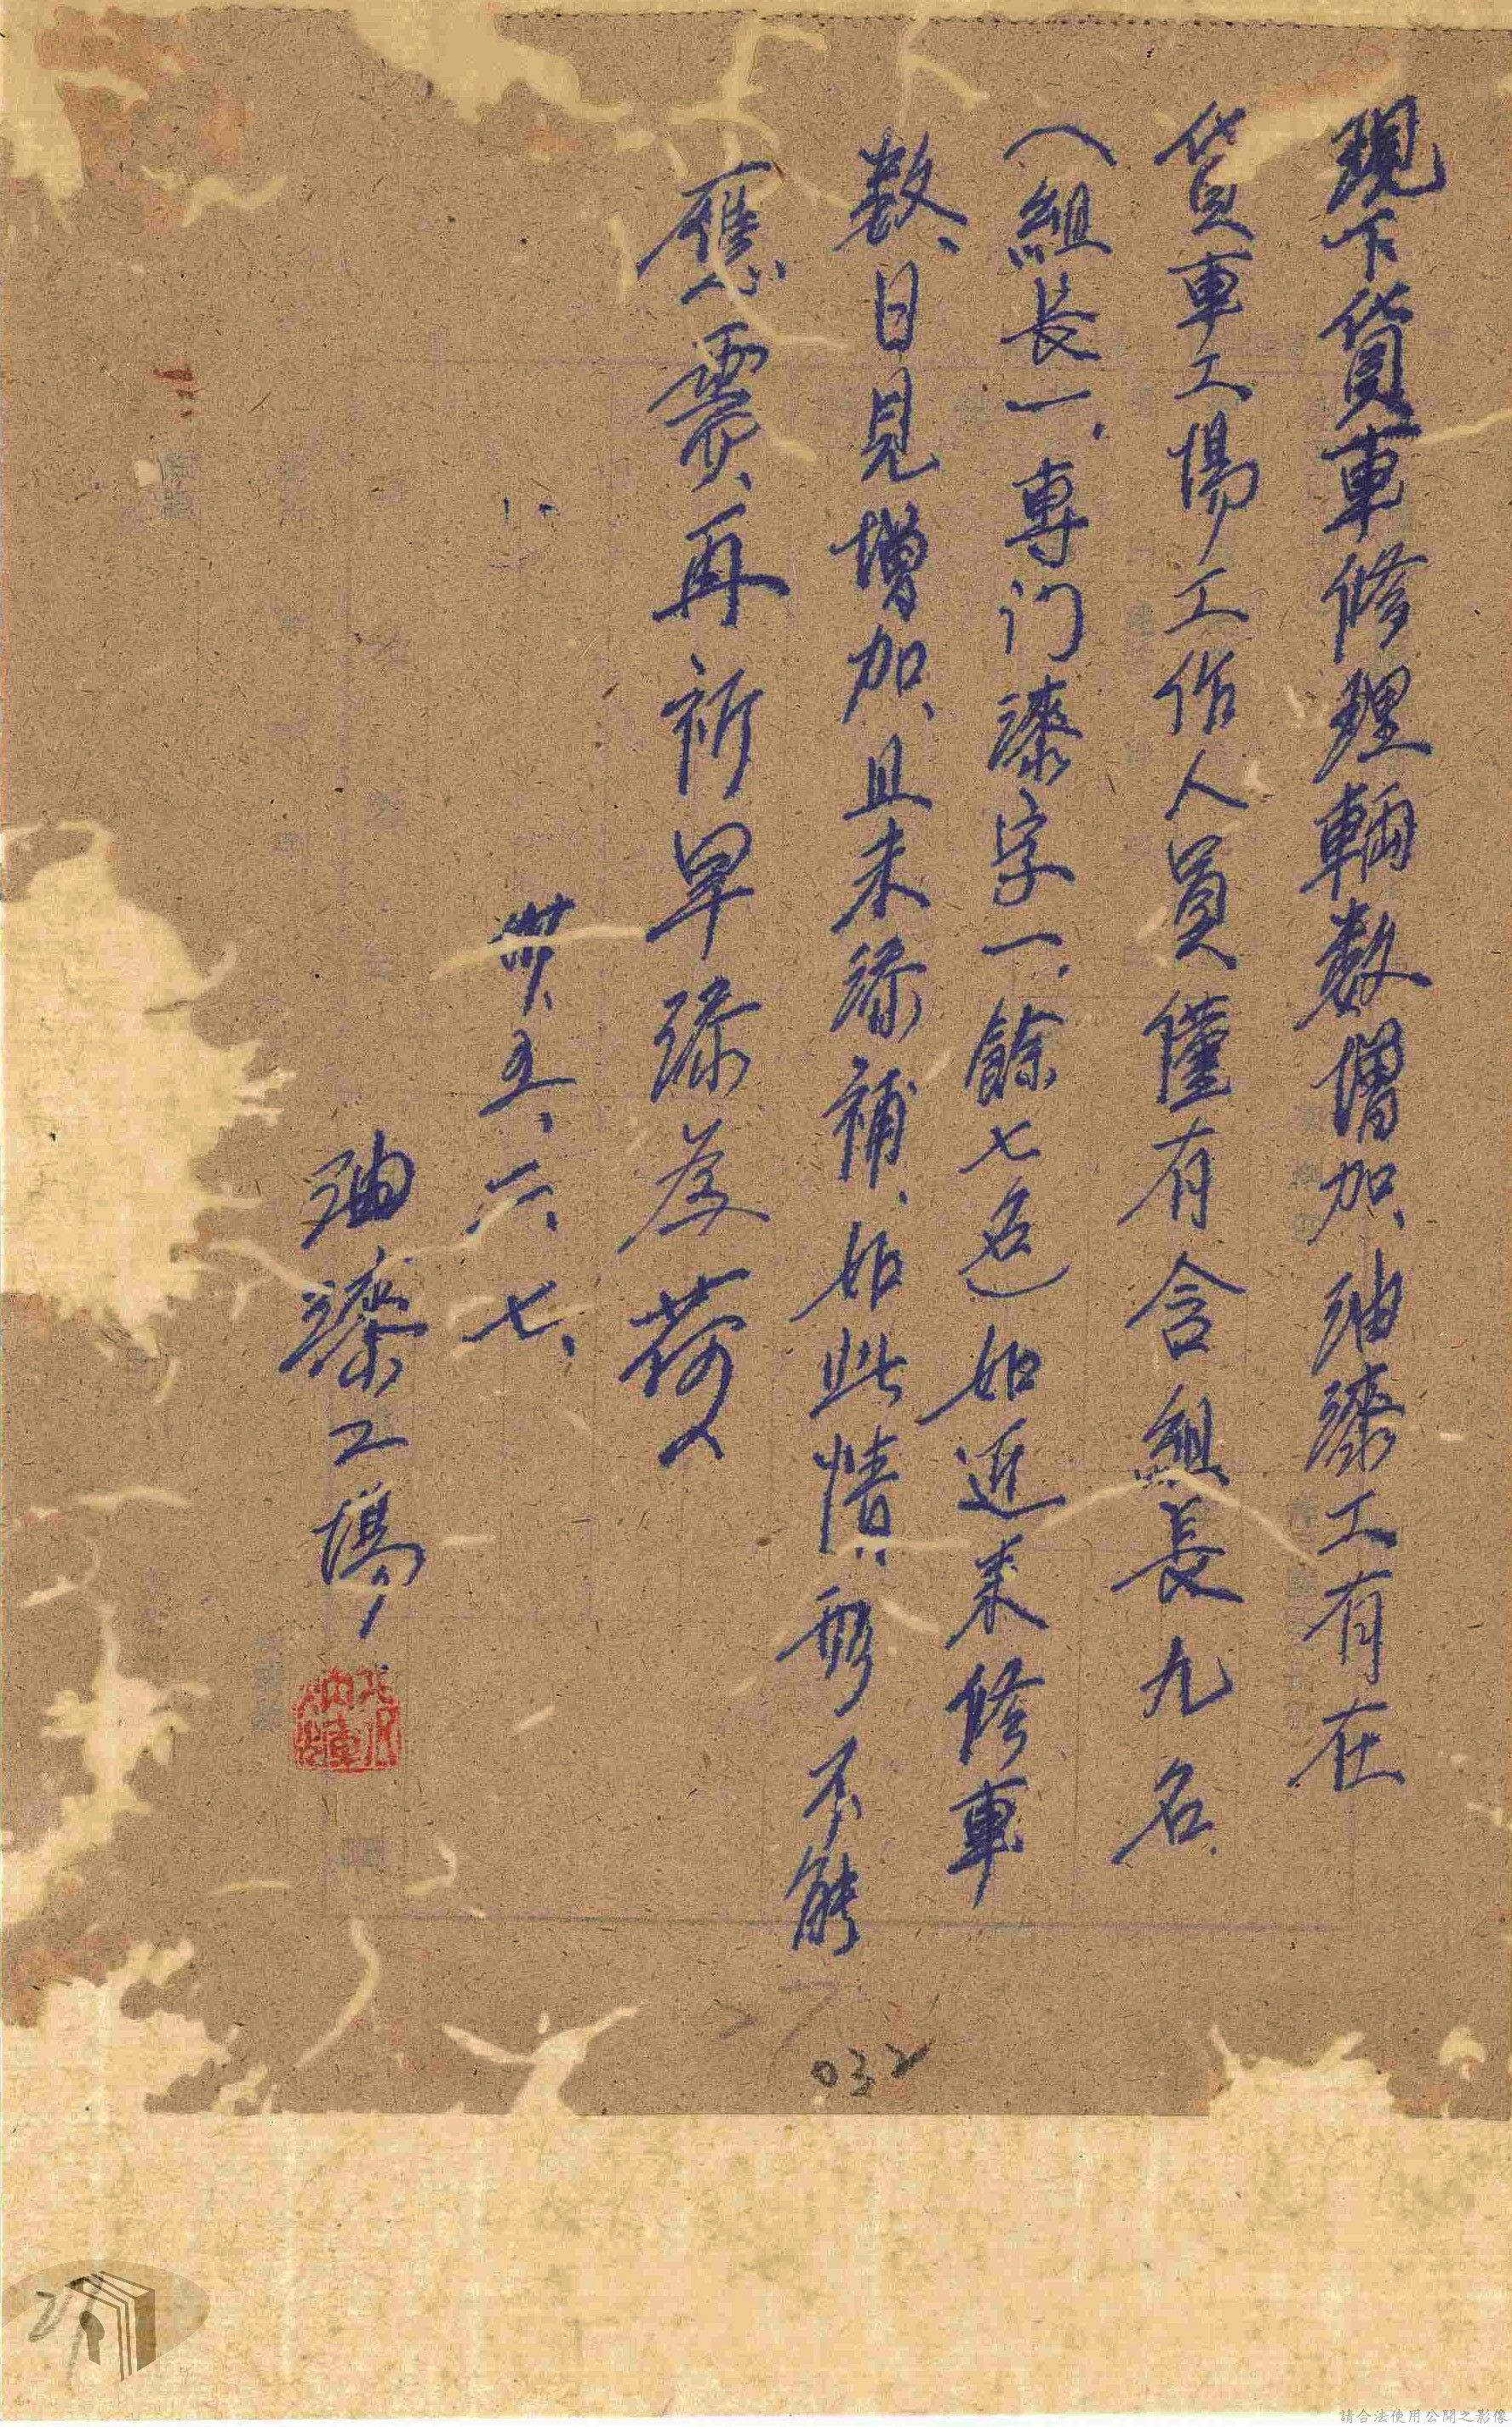 現下貨車修理輛数增加、油漆工有在
貨車工場工作人員僅有含組長九名
（組長一、專门漆字一、餘七名）如近来修車
数、日見增加、且未添補、如此情形不能
應需、再祈早添為荷
卅五、六、七、
油漆工場
032
27
請合法使用公開之影像